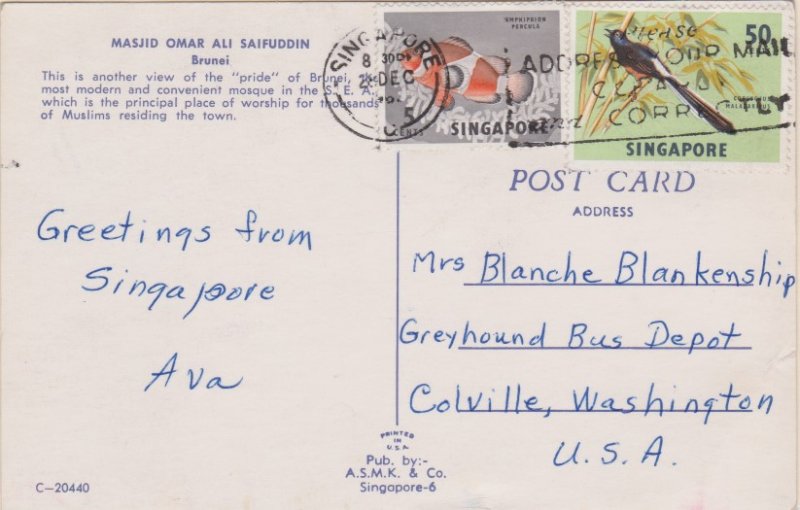 MASJID OMAR ALI SAIFUDDIN
Brunei
This is another view of the "pride" of Brunei, the
most modern and convenient mosque in the S. E. A.
which is the principal place of worship for thousands
of Muslims residing the town.
Greetings from
Singapore
Ava
C-20440
SINGAPORE
8
DEC
AMPHIPRION
PERCULA
5
CENTS
SINGAPORE
50
COPSYCHUS
MALABARICUS
SINGAPORE
please
ADDRESS YOUR MAIL
and CORRECTLY
POST CARD
ADDRESS
Mrs Blanche Blankenship
Greyhound Bus Depot
Colville, Washington
U. S. A.
PRINTED
IN
U.S.A.
Pub. by:-
A.S.M.K. & Co.
Singapore-6